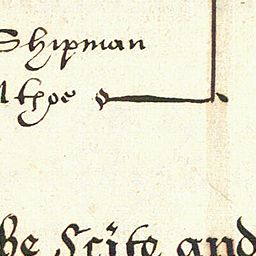 Shipman
thoe
he Scite and